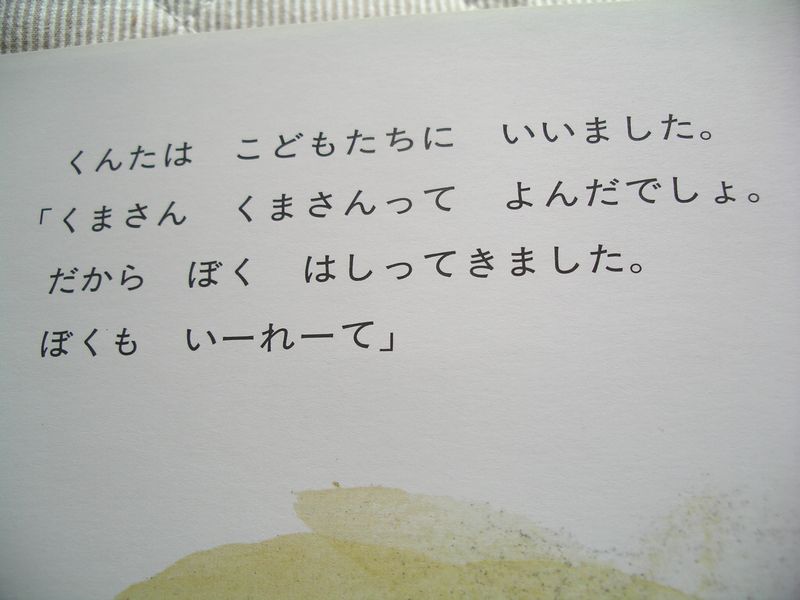 くんたは　こどもたちに　いいました。
「くまさん　くまさんって　よんだでしょ。
だから　ぼく　はしってきました。
ぼくも　いーれーて」